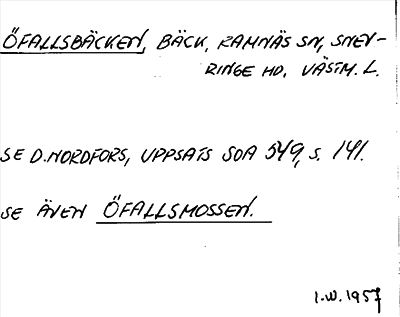 ÖFALLSBÄCKEN, BÄCK, RAMNÄS SN, SNEV-
RINGE HD, VÄSTM. L.
SE D. NORDFORS, UPPSATS SOA 549, S. 141.
SE ÄVEN ÖFALLSMOSSEN.
I.W. 1957